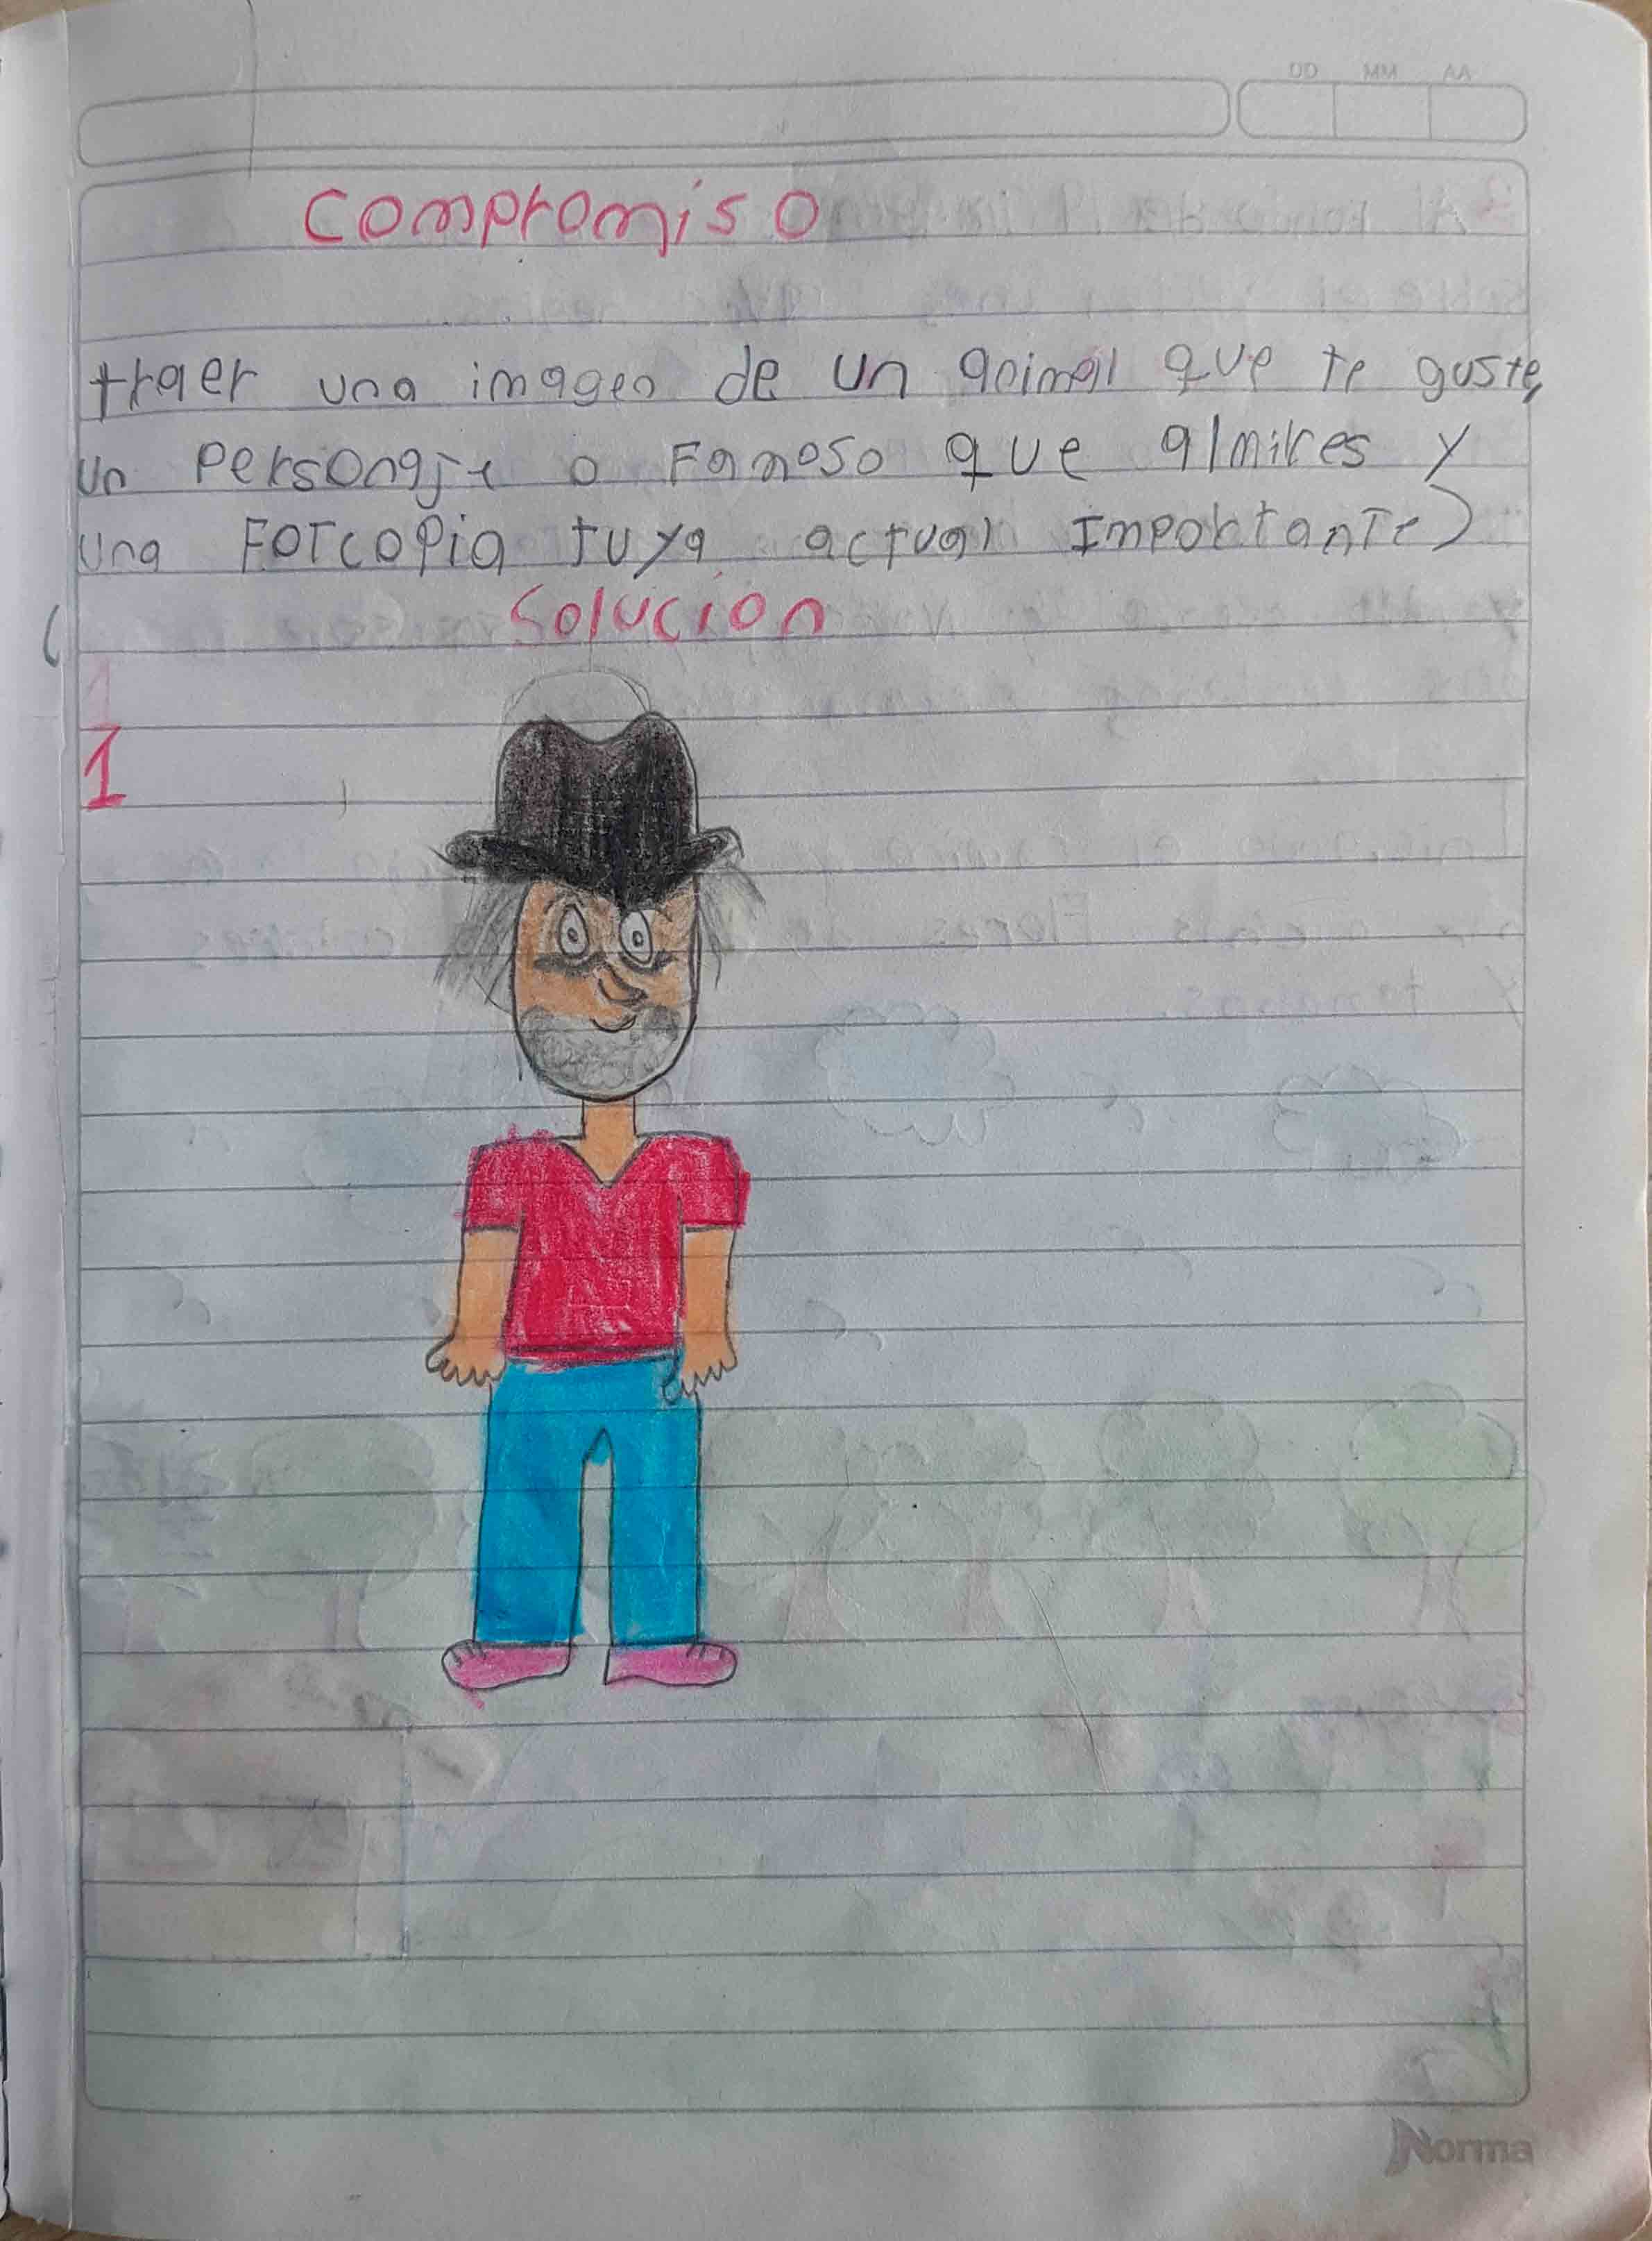 DD MM AA
Compromiso
traer una imagen de un animal que te guste,
un Personaje o Famoso que almires y
una Fotcopia tuya actual Importante)
Solución
1
1
Norma